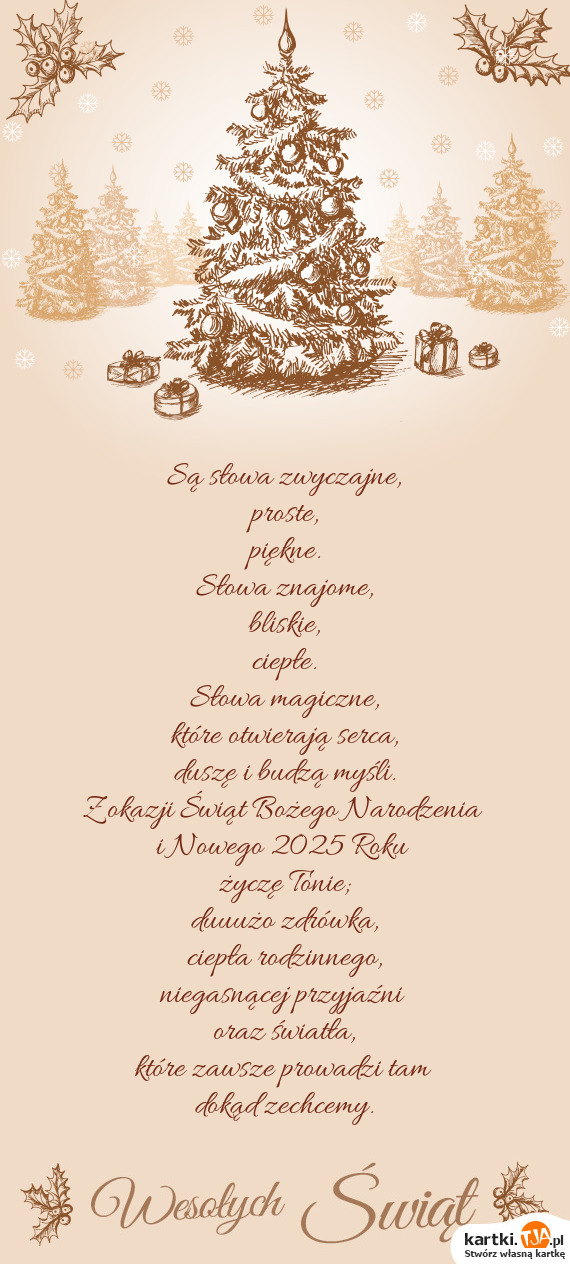 Są słowa zwyczajne,
proste,
piękne.
Słowa znajome,
bliskie,
ciepłe.
Słowa magiczne,
które otwierają serca,
duszę i budzą myśli.
Z okazji Świąt Bożego Narodzenia
i Nowego 2025 Roku
życzę Tonie;
duuużo zdrówka,
ciepła rodzinnego,
niegasnącej przyjaźni
oraz światła,
które zawsze prowadzi tam
dokąd zechcemy.
Wesołych Świąt
kartki.TJA.pl
Stwórz własną kartkę